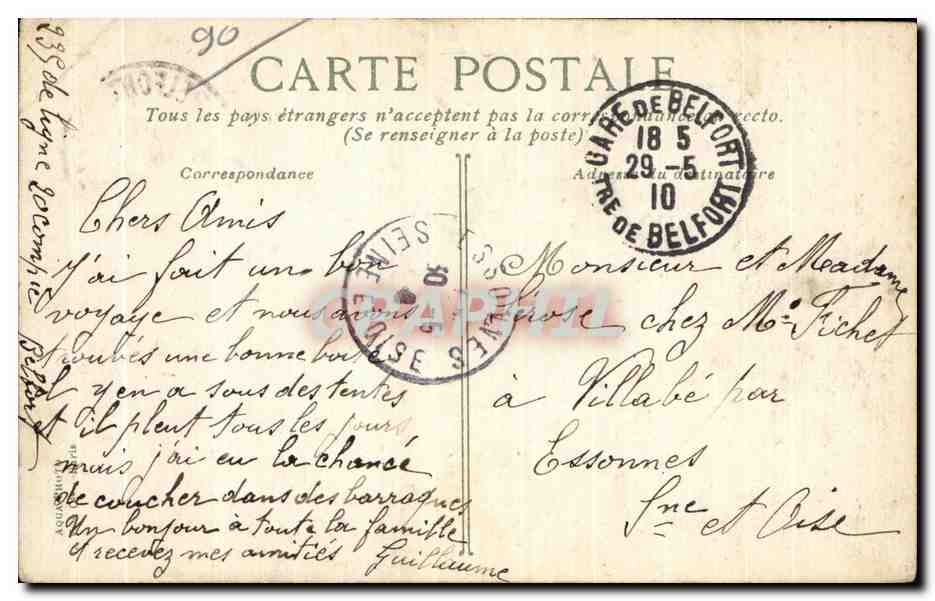 90
CARTE POSTALE
Tous les pays étrangers n'acceptent pas la correspondance au recto.
(Se renseigner à la poste)
Correspondance
Adresse du destinataire
GARE DE BELFORT
18 5
29 -5
10
TRE DE BELFORT
ESSONNES
30 5
10
SEINE ET OISE
235 de ligne 20 compie
Belfort
Chers Amis
j'ai fait un bon
voyage et nous avons
trouvés une bonne boite
il y en a sous des tentes
et il pleut tous les jours
mais j'ai eu la chance
de coucher dans des barraques
Un bonjour à toute la famille
et recevez mes amitiés
Guillaume
Monsieur et Madame
chez Mr Fichet
à Villabé par
Essonnes
Sne et Oise
AQUA PHOTO
Paris
CPAPHIL